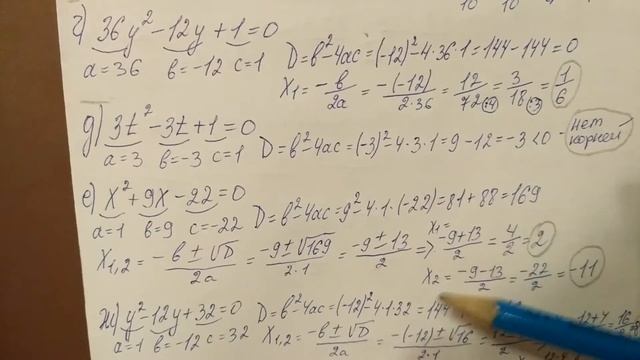 г) 36y² - 12y + 1 = 0
a = 36 в = -12 c = 1 D = в² - 4ac = (-12)² - 4·36·1 = 144 - 144 = 0
X₁ = -в/2a = -(-12)/2·36 = 12/72(:4) = 3/18(:3) = 1/6
д) 3t² - 3t + 1 = 0
a = 3 в = -3 c = 1 D = в² - 4ac = (-3)² - 4·3·1 = 9 - 12 = -3 < 0 - нет корней
е) x² + 9x - 22 = 0
a = 1 в = 9 c = -22 D = в² - 4ac = 9² - 4·1·(-22) = 81 + 88 = 169
X₁,₂ = -в ± √D/2a = -9 ± √169/2·1 = -9 ± 13/2 => x₁ = -9+13/2 = 4/2 = 2
x₂ = -9-13/2 = -22/2 = -11
ж) y² - 12y + 32 = 0 D = в² - 4ac = (-12)² - 4·1·32 = 144
a = 1 в = -12 c = 32 X₁,₂ = -в ± √D/2a = -(-12) ± √16/2·1